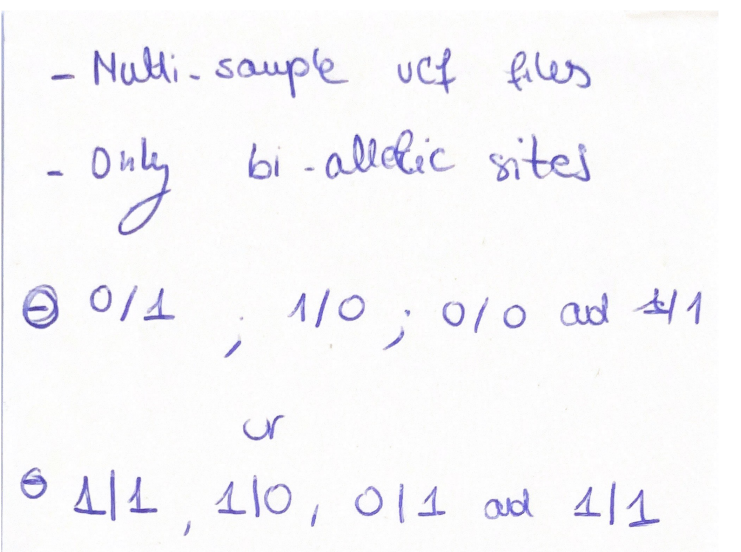 - Multi-sample vcf files
- Only bi-allelic sites
⊖ 0/1 ; 1/0 ; 0/0 ad 1/1
or
⊖ 1|1 , 1|0 , 0|1 ad 1|1